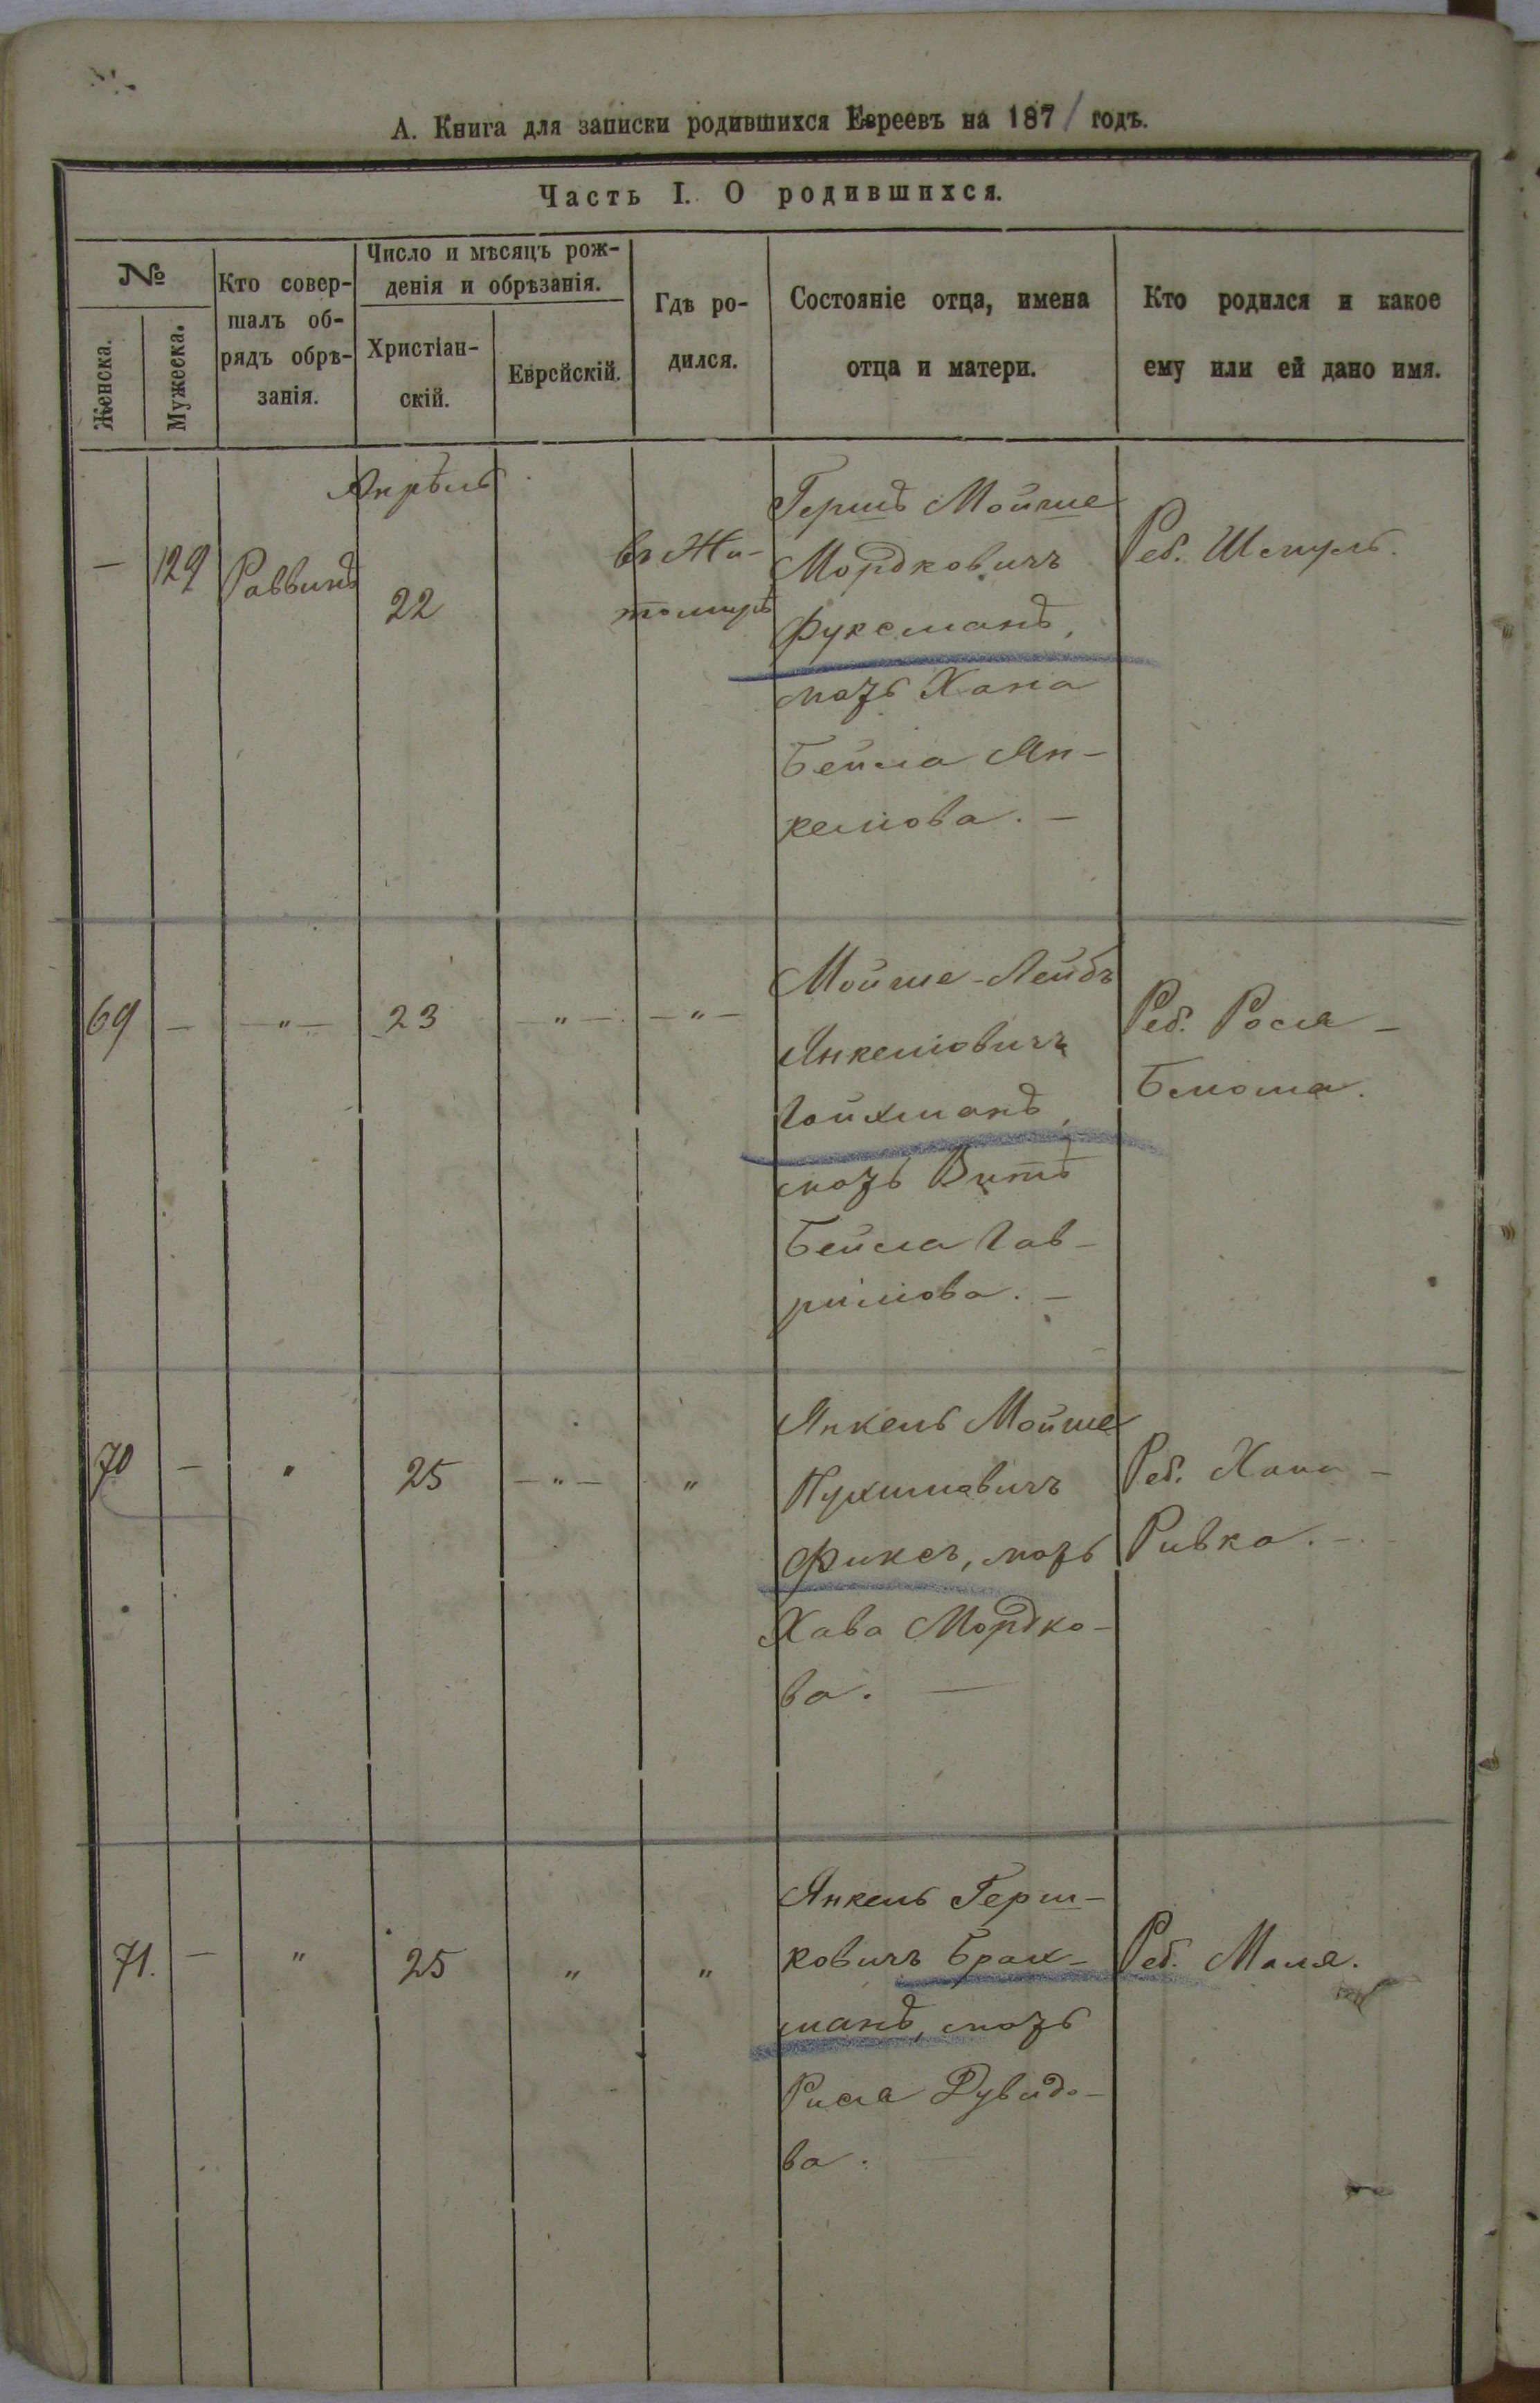 А. Книга для записки родившихся Евреевъ на 1871 годъ.
Часть I. О родившихся.
№
Женска.
Мужеска.
Кто совер-
шалъ об-
рядъ обрѣ-
занія.
Число и мѣсяцъ рож-
денія и обрѣзанія.
Христіан-
скій.
Еврейскій.
Гдѣ ро-
дился.
Состояніе отца, имена
отца и матери.
Кто родился и какое
ему или ей дано имя.
— 129 Раввинъ
Апрѣль
22
въ Жи-
томирѣ
Гершъ Мойше
Мордковичъ
Фуксманъ,
мать Хана
Бейла Ян-
келіова. —
Реб. Шмуль.
69 — —"— 23 —"— —"—
Мойше-Лейбъ
Янкеліовичъ
Гойхманъ,
мать
Бейла Гав-
риліова. —
Реб. Рося —
Блюма.
70 — " 25 —"— "
Янкель Мойше
Фуксъ, мать
Хава Мордко-
ва. —
Реб. Хана —
Ривка. —
71. — " 25 " "
Янкель Герш-
ковичъ Брах-
манъ, мать
Рися Дувидо-
ва. —
Реб. Маля.